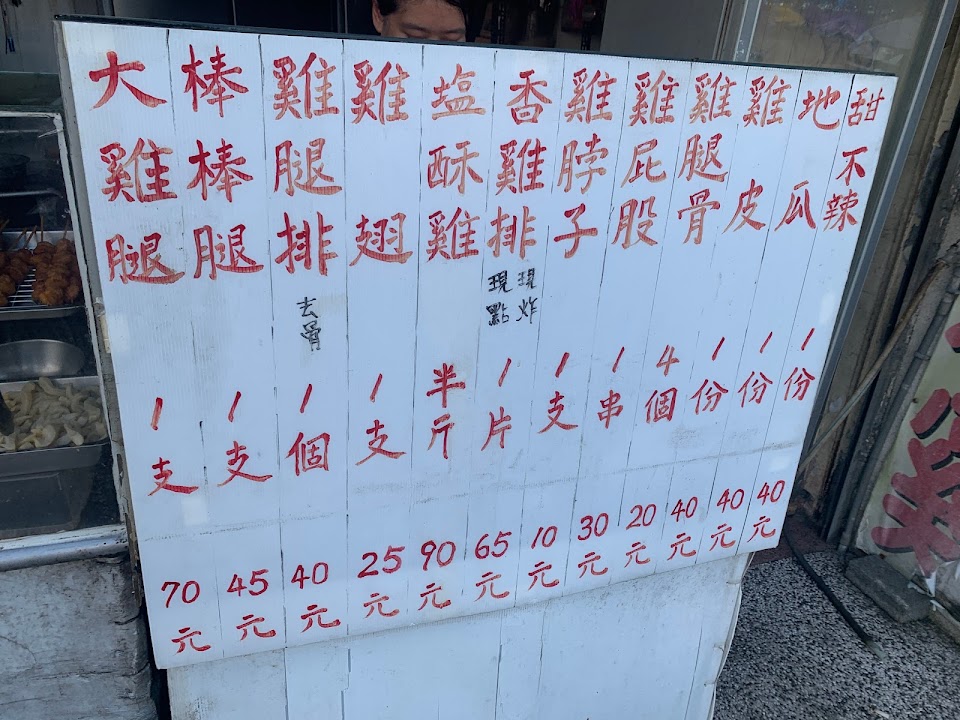 大雞腿 1支 70元
棒棒腿 1支 45元
雞腿排 去骨 1個 40元
雞翅 1支 25元
塩酥雞 半斤 90元
香雞排 現點現炸 1片 65元
雞脖子 1支 10元
雞屁股 1串 30元
雞腿骨 4個 20元
雞皮 1份 40元
地瓜 1份 40元
甜不辣 1份 40元